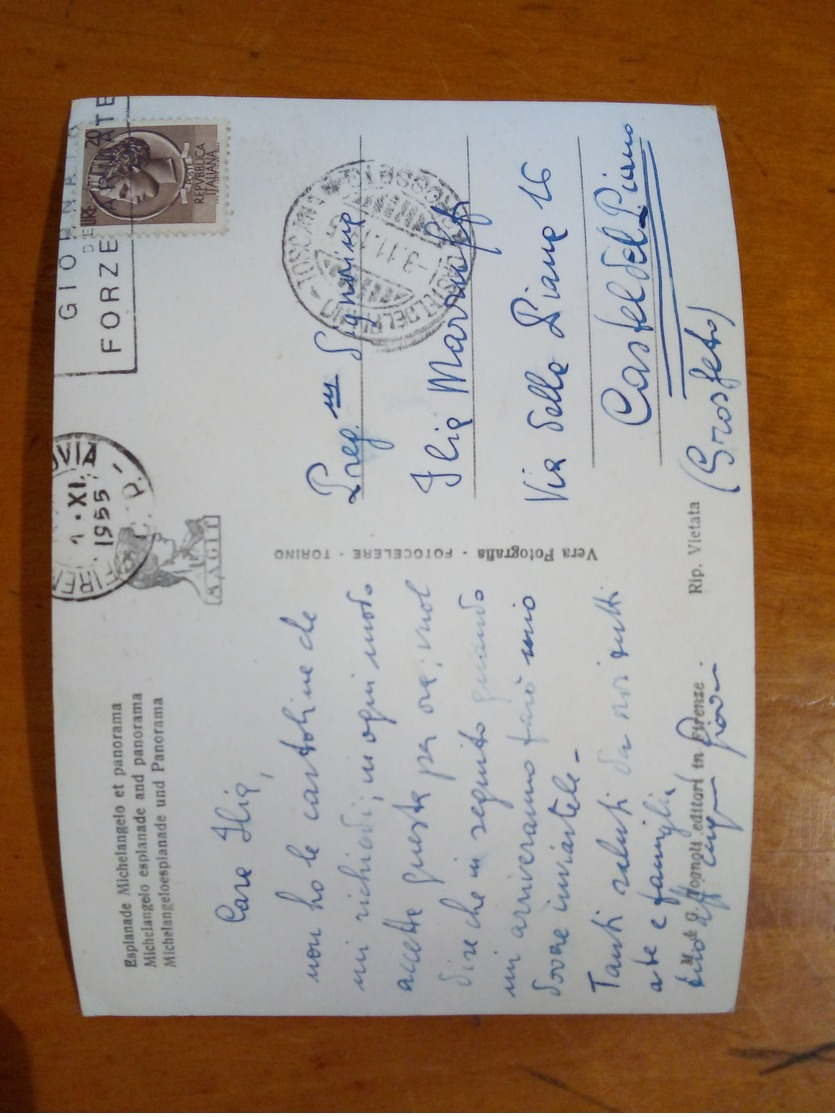 Esplanade Michelangelo et panorama
Michelangelo esplanade and panorama
Michelangeloesplanade und Panorama
Cara Ilia,
non ho le cartoline che
mi richiedi; in ogni modo
accetta questa per ora; vuol
dire che in seguito quando
mi arriveranno farò mio
dovere inviartele -
Tanti saluti da noi tutti
a te e famiglia
tuo aff
M. & G. Tognoli editori in Firenze.
Rip. Vietata
Vera Fotografia - FOTOCELERE - TORINO
MAGIT
FERROVIA
FIREN
XI.
1955
GIORNATA
DELLE
FORZE ARMATE
POSTE
REPVBBLICA
ITALIANA
LIRE 20
CASTEL DEL PIANO
-3.11.
Preg.ma Signorina
Ilia
Via della Piana 16
Castel del Piano
(Grosseto)